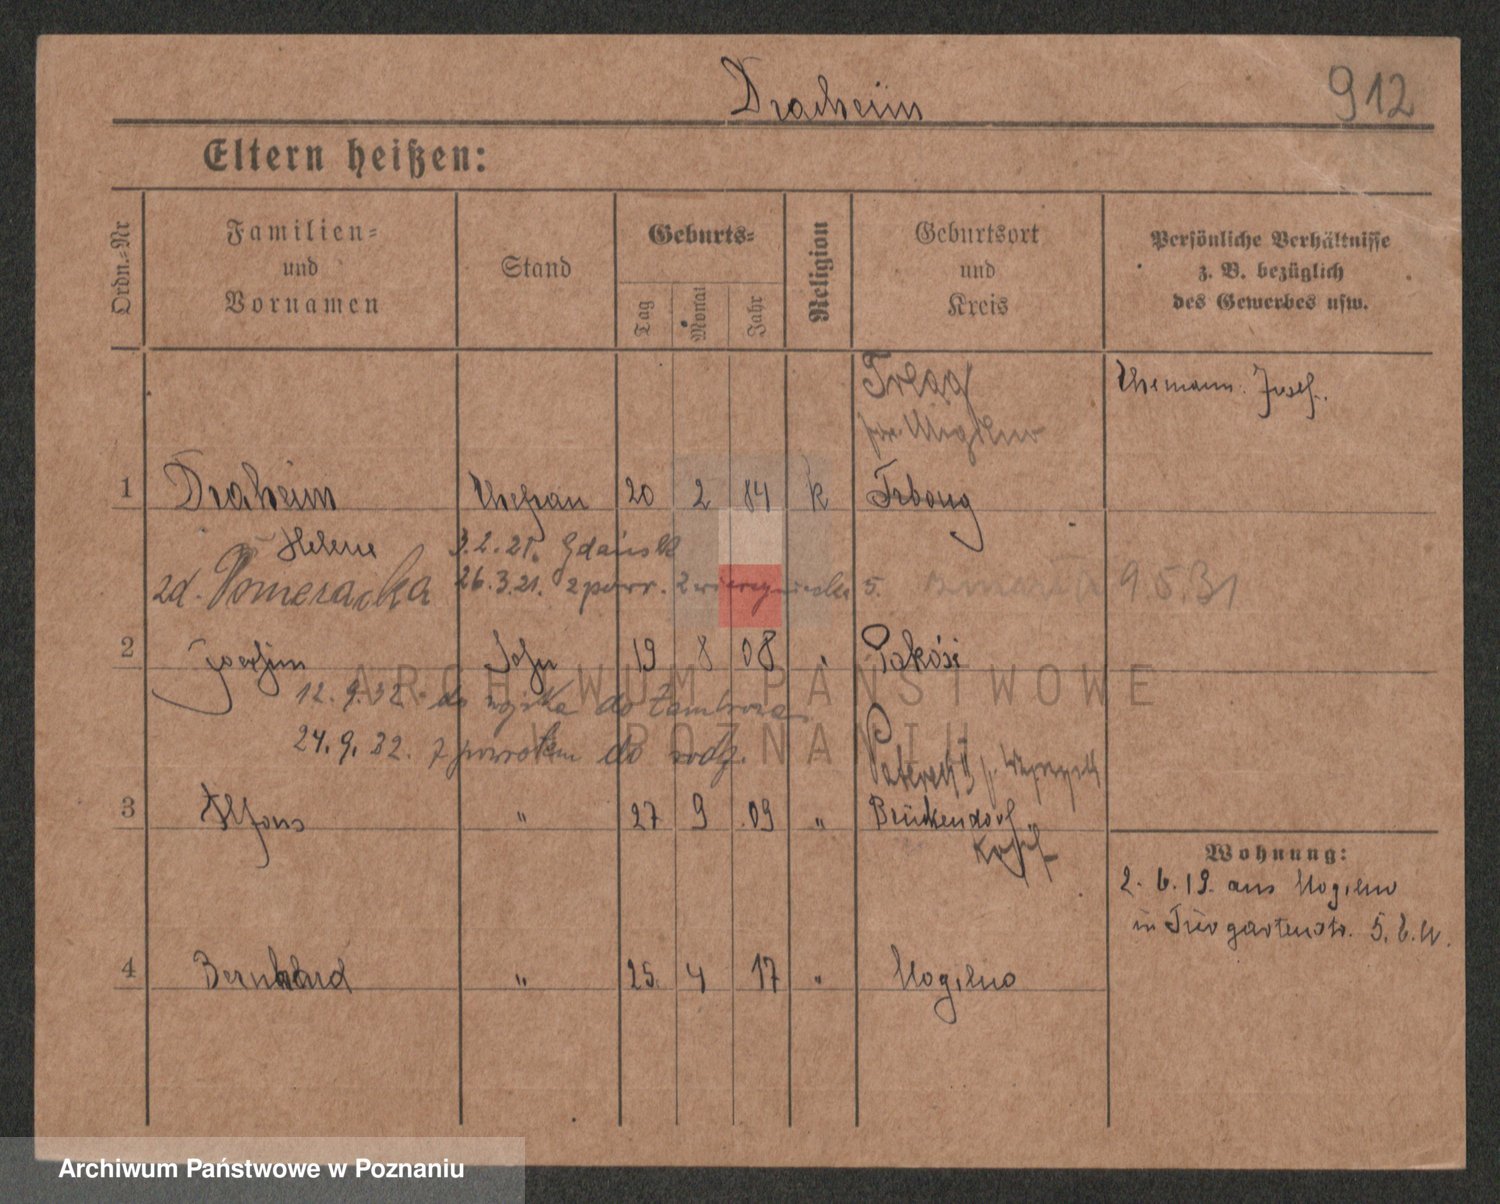 Draheim
912
Eltern heißen:
Ordn.-Nr
Familien-
und
Vornamen
Stand
Geburts-
Tag
Monat
Jahr
Religion
Geburtsort
und
Kreis
Persönliche Verhältnisse
z. B. bezüglich
des Gewerbes usw.
Ehemann: Josef.
1 Draheim Ehefrau 20 2 84 k
Helene 3.2.21. Gdańsk
zd. Pomeracka 26.3.21. z powr. Zwierzyniecka 5. 9.5.31
2 Joachim Sohn 19 8 08 Pakość
12.9.32. do wojska do
24.9.32. z powrotem do rodz.
3 Alfons " 27 9 09 " Brückendorf
Wohnung:
2. 6. 19. aus Mogilno
in Tiergartenstr. 5. b. W.
4 Bernhard " 25. 4 17 " Mogilno
ARCHIWUM PAŃSTWOWE
W POZNANIU
Archiwum Państwowe w Poznaniu